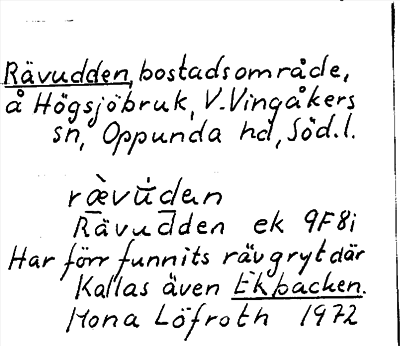 Rävudden, bostadsområde,
å Högsjöbruk, V. Vingåkers
sn, Oppunda hd, Söd.l.
ræ̀vu̇̀dan
Rävudden ek 9F8i
Har förr funnits rävgryt där
Kallas även Ekbacken.
Mona Löfroth 1972